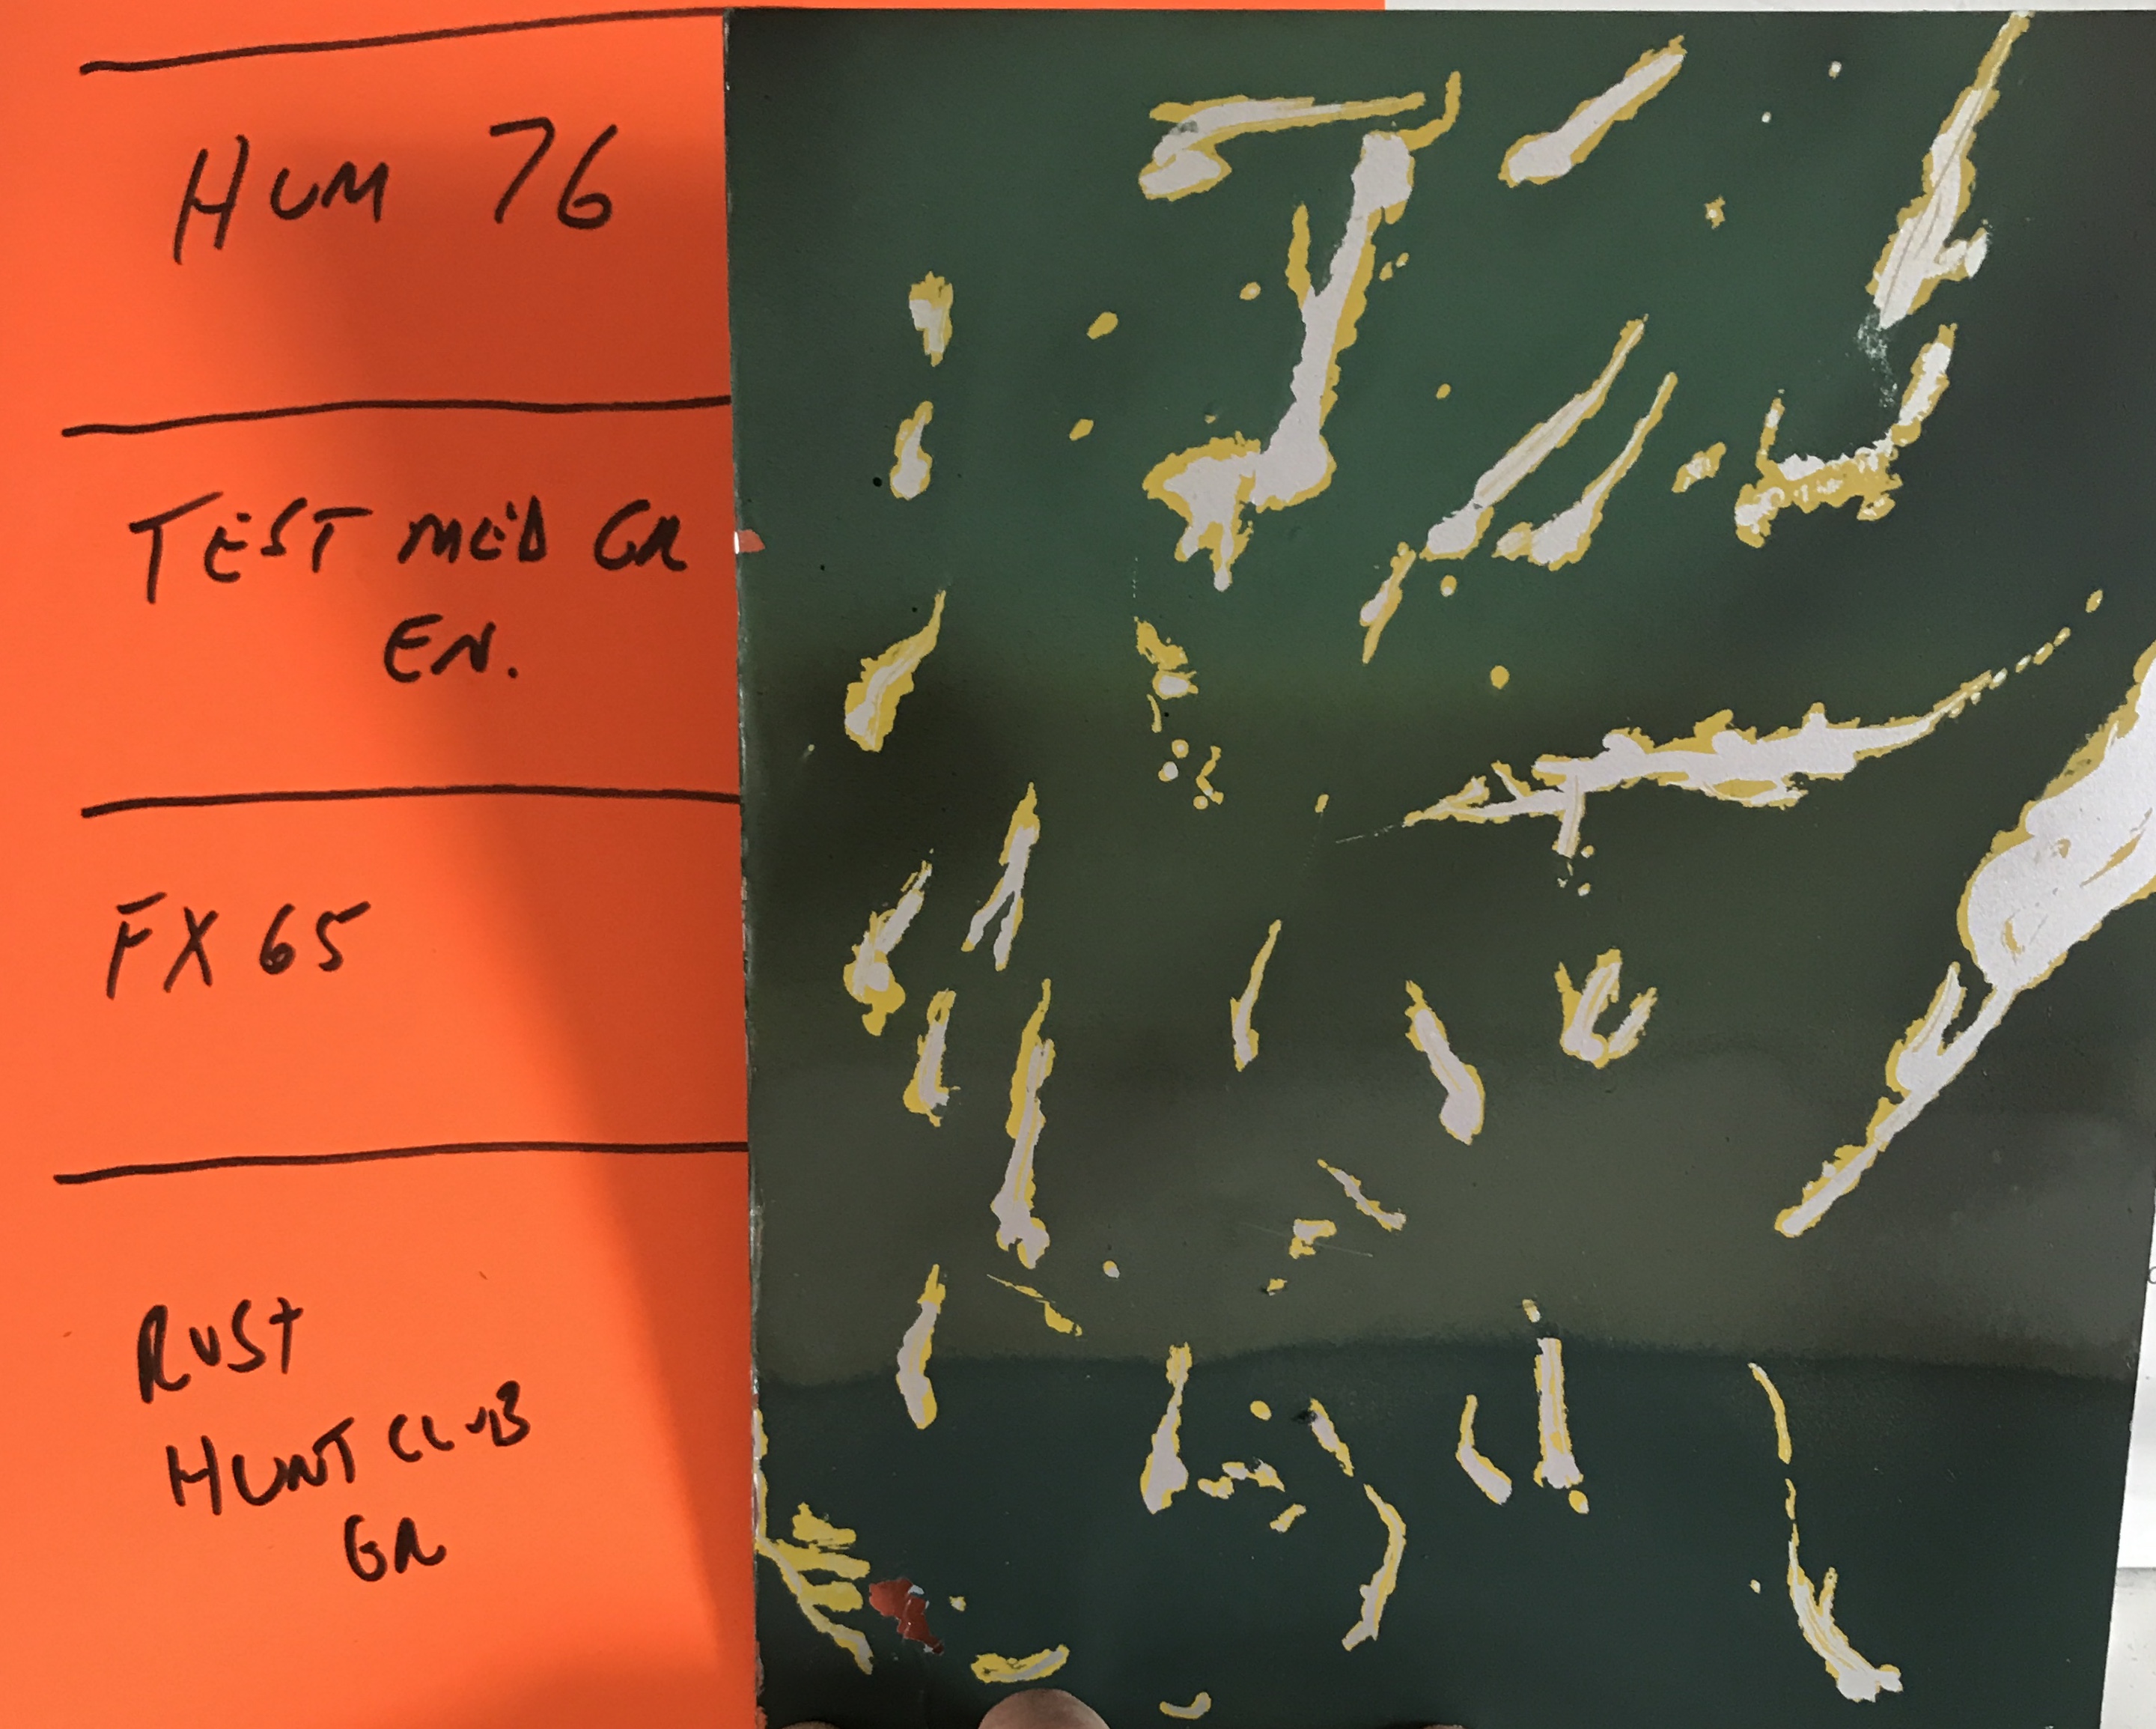 HUM 76
TEST MED GR
EN.
FX 65
RUST
HUNT CLUB
GR